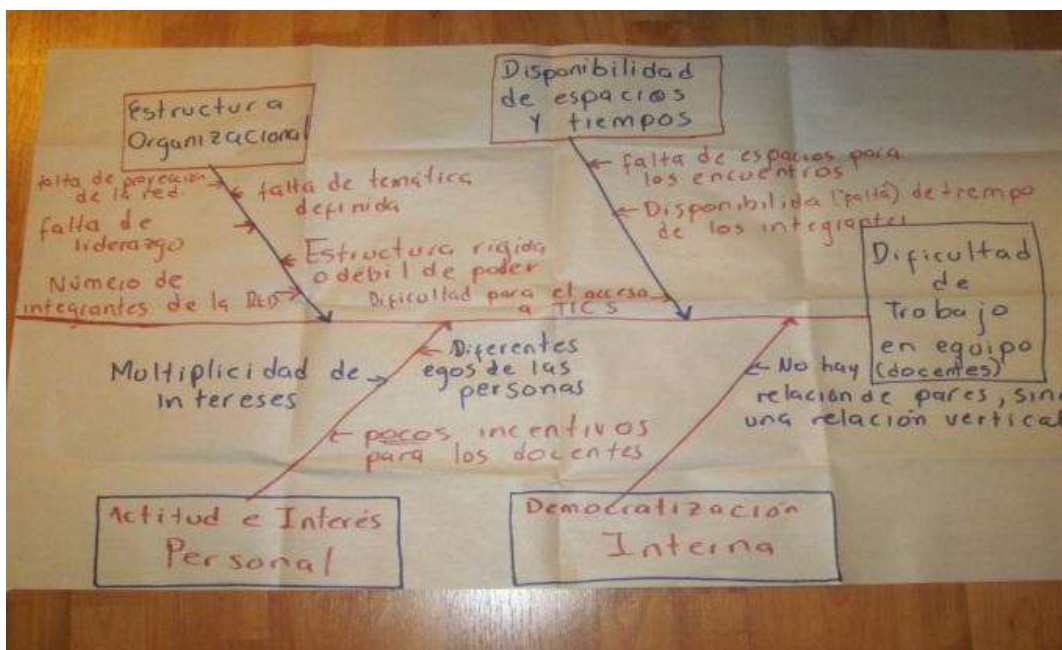 Estructura
Organizacional
Disponibilidad
de espacios
y tiempos
falta de proyección
de la red
falta de temática
definida
falta de
liderazgo
Estructura rigida
o débil de poder
Número de
integrantes de la RED
falta de espacios para
los encuentros
Disponibilida (falta) de tiempo
de los integrantes
Dificultad para el acceso
a TICS
Dificultad
de
Trabajo
en equipo
(docentes)
Multiplicidad de
intereses
Diferentes
egos de las
personas
pocos incentivos
para los docentes
No hay
relación de pares, sino
una relación vertical
Actitud e Interés
Personal
Democratización
Interna